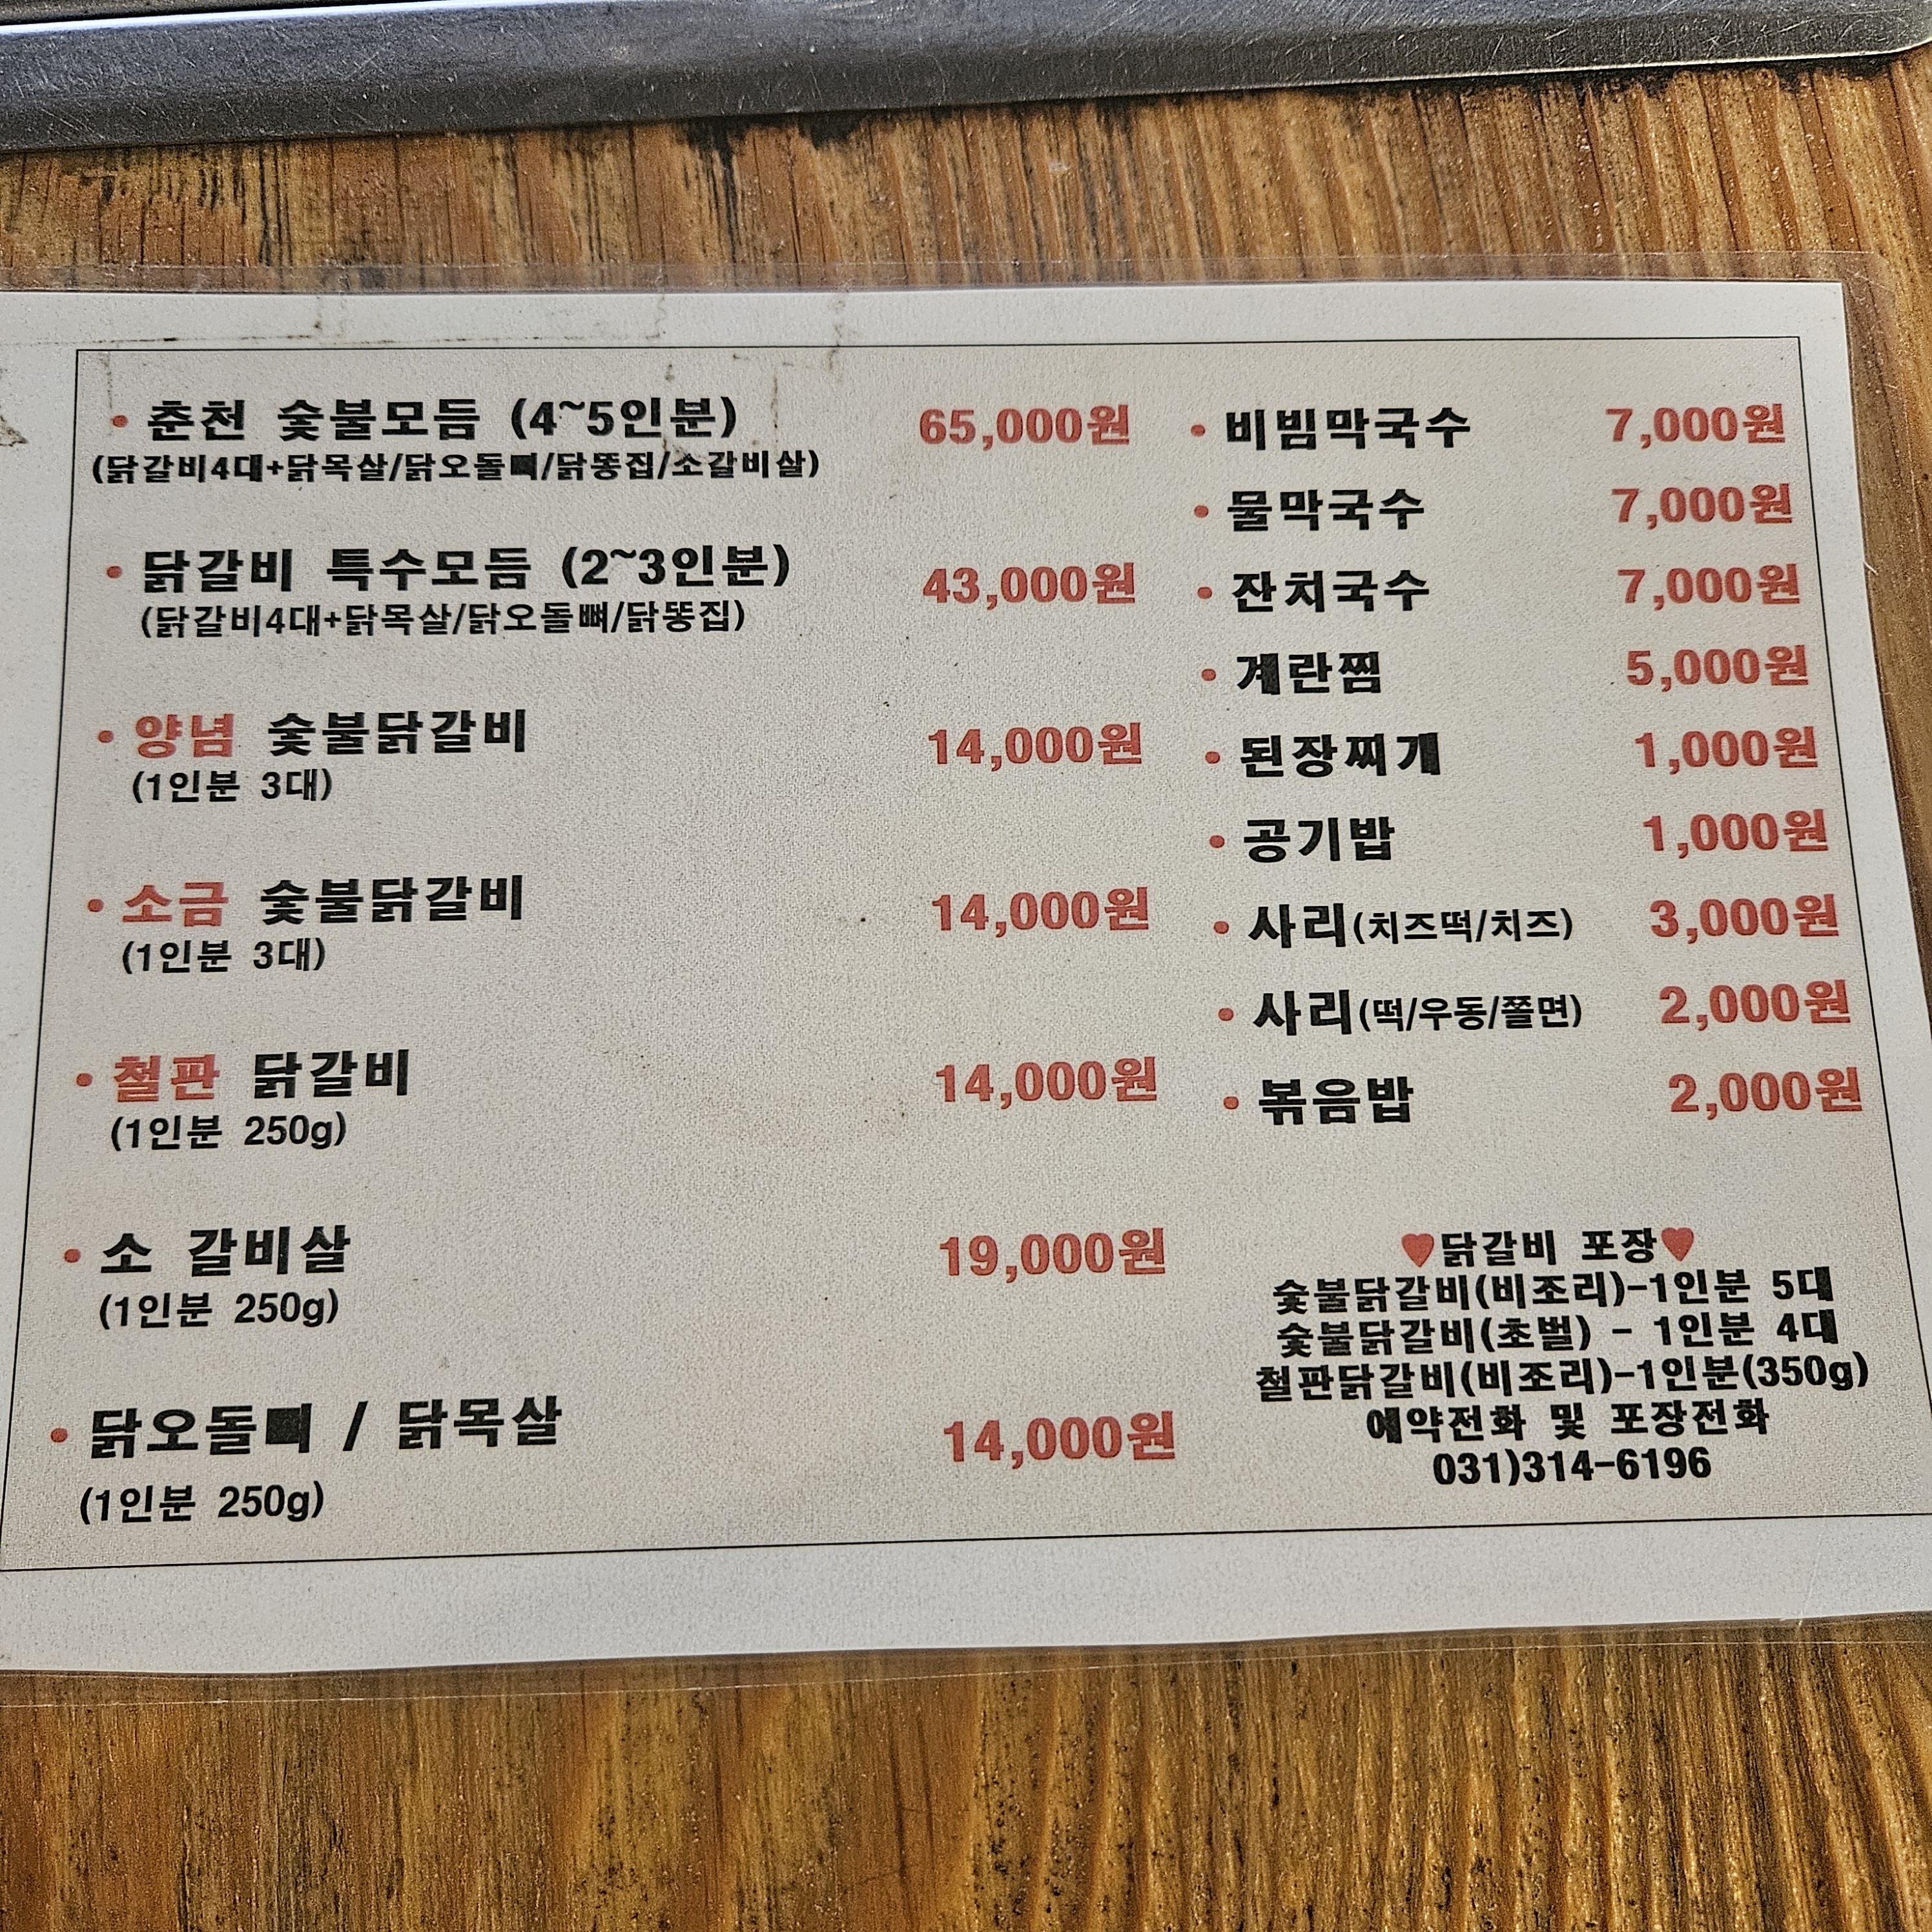 • 춘천 숯불모듬 (4~5인분) 65,000원
(닭갈비4대+닭목살/닭오돌뼈/닭똥집/소갈비살)
• 닭갈비 특수모듬 (2~3인분) 43,000원
(닭갈비4대+닭목살/닭오돌뼈/닭똥집)
• 양념 숯불닭갈비 14,000원
(1인분 3대)
• 소금 숯불닭갈비 14,000원
(1인분 3대)
• 철판 닭갈비 14,000원
(1인분 250g)
• 소 갈비살 19,000원
(1인분 250g)
• 닭오돌뼈 / 닭목살 14,000원
(1인분 250g)
• 비빔막국수 7,000원
• 물막국수 7,000원
• 잔치국수 7,000원
• 계란찜 5,000원
• 된장찌개 1,000원
• 공기밥 1,000원
• 사리(치즈떡/치즈) 3,000원
• 사리(떡/우동/쫄면) 2,000원
• 볶음밥 2,000원
♥닭갈비 포장♥
숯불닭갈비(비조리)-1인분 5대
숯불닭갈비(초벌) - 1인분 4대
철판닭갈비(비조리)-1인분(350g)
예약전화 및 포장전화
031)314-6196